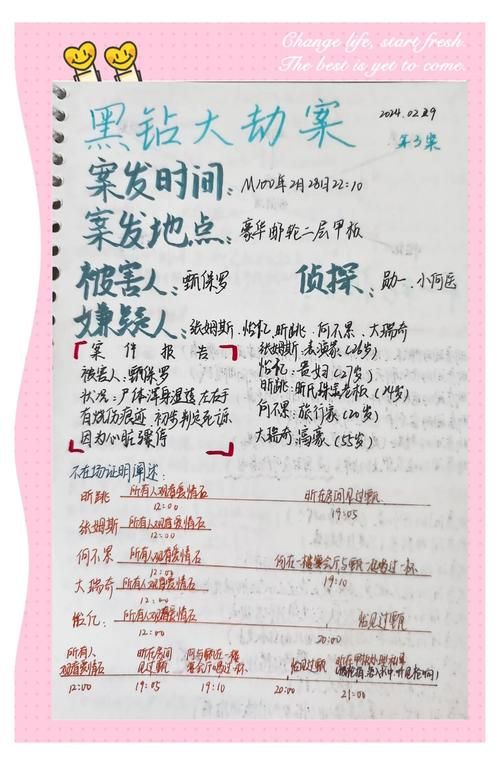 Change life, start fresh.
The best is yet to come.
2024.02.29
黑钻大劫案
第3案
案发时间:M100年2月28日22:10
案发地点:豪华邮轮二层甲板
被害人:甄保罗 侦探:勋一 小何医
嫌疑人:张姆斯 怡亿 昕跳 何不累 大瑞奇
案件报告
被害人:甄保罗
状况:尸体浑身湿透左右手
有烧伤痕迹,初步判定死
因为心脏骤停
张姆斯:表演家(26岁)
怡亿:贵妇(27岁)
昕跳:昕氏珠宝老板(24岁)
何不累:旅行家(20岁)
大瑞奇:富豪(55岁)
不在场证明阐述:
昕跳 所有人观看爱情石 昕在房间见过甄
12:00 19:05
张姆斯 所有人观看爱情石
12:00
何不累 所有人观看爱情石 何在一楼宴会厅与甄一起喝过一杯
12:00 19:10
大瑞奇:所有人观看爱情石
12:00
怡亿:所有人观看爱情石 怡见过甄
12:00 20:00
所有人 昕在房间 何与甄在一楼
观看爱情石 见过甄 宴会厅喝过一杯 怡见过甄
12:00 19:05 19:10 20:00 21:00